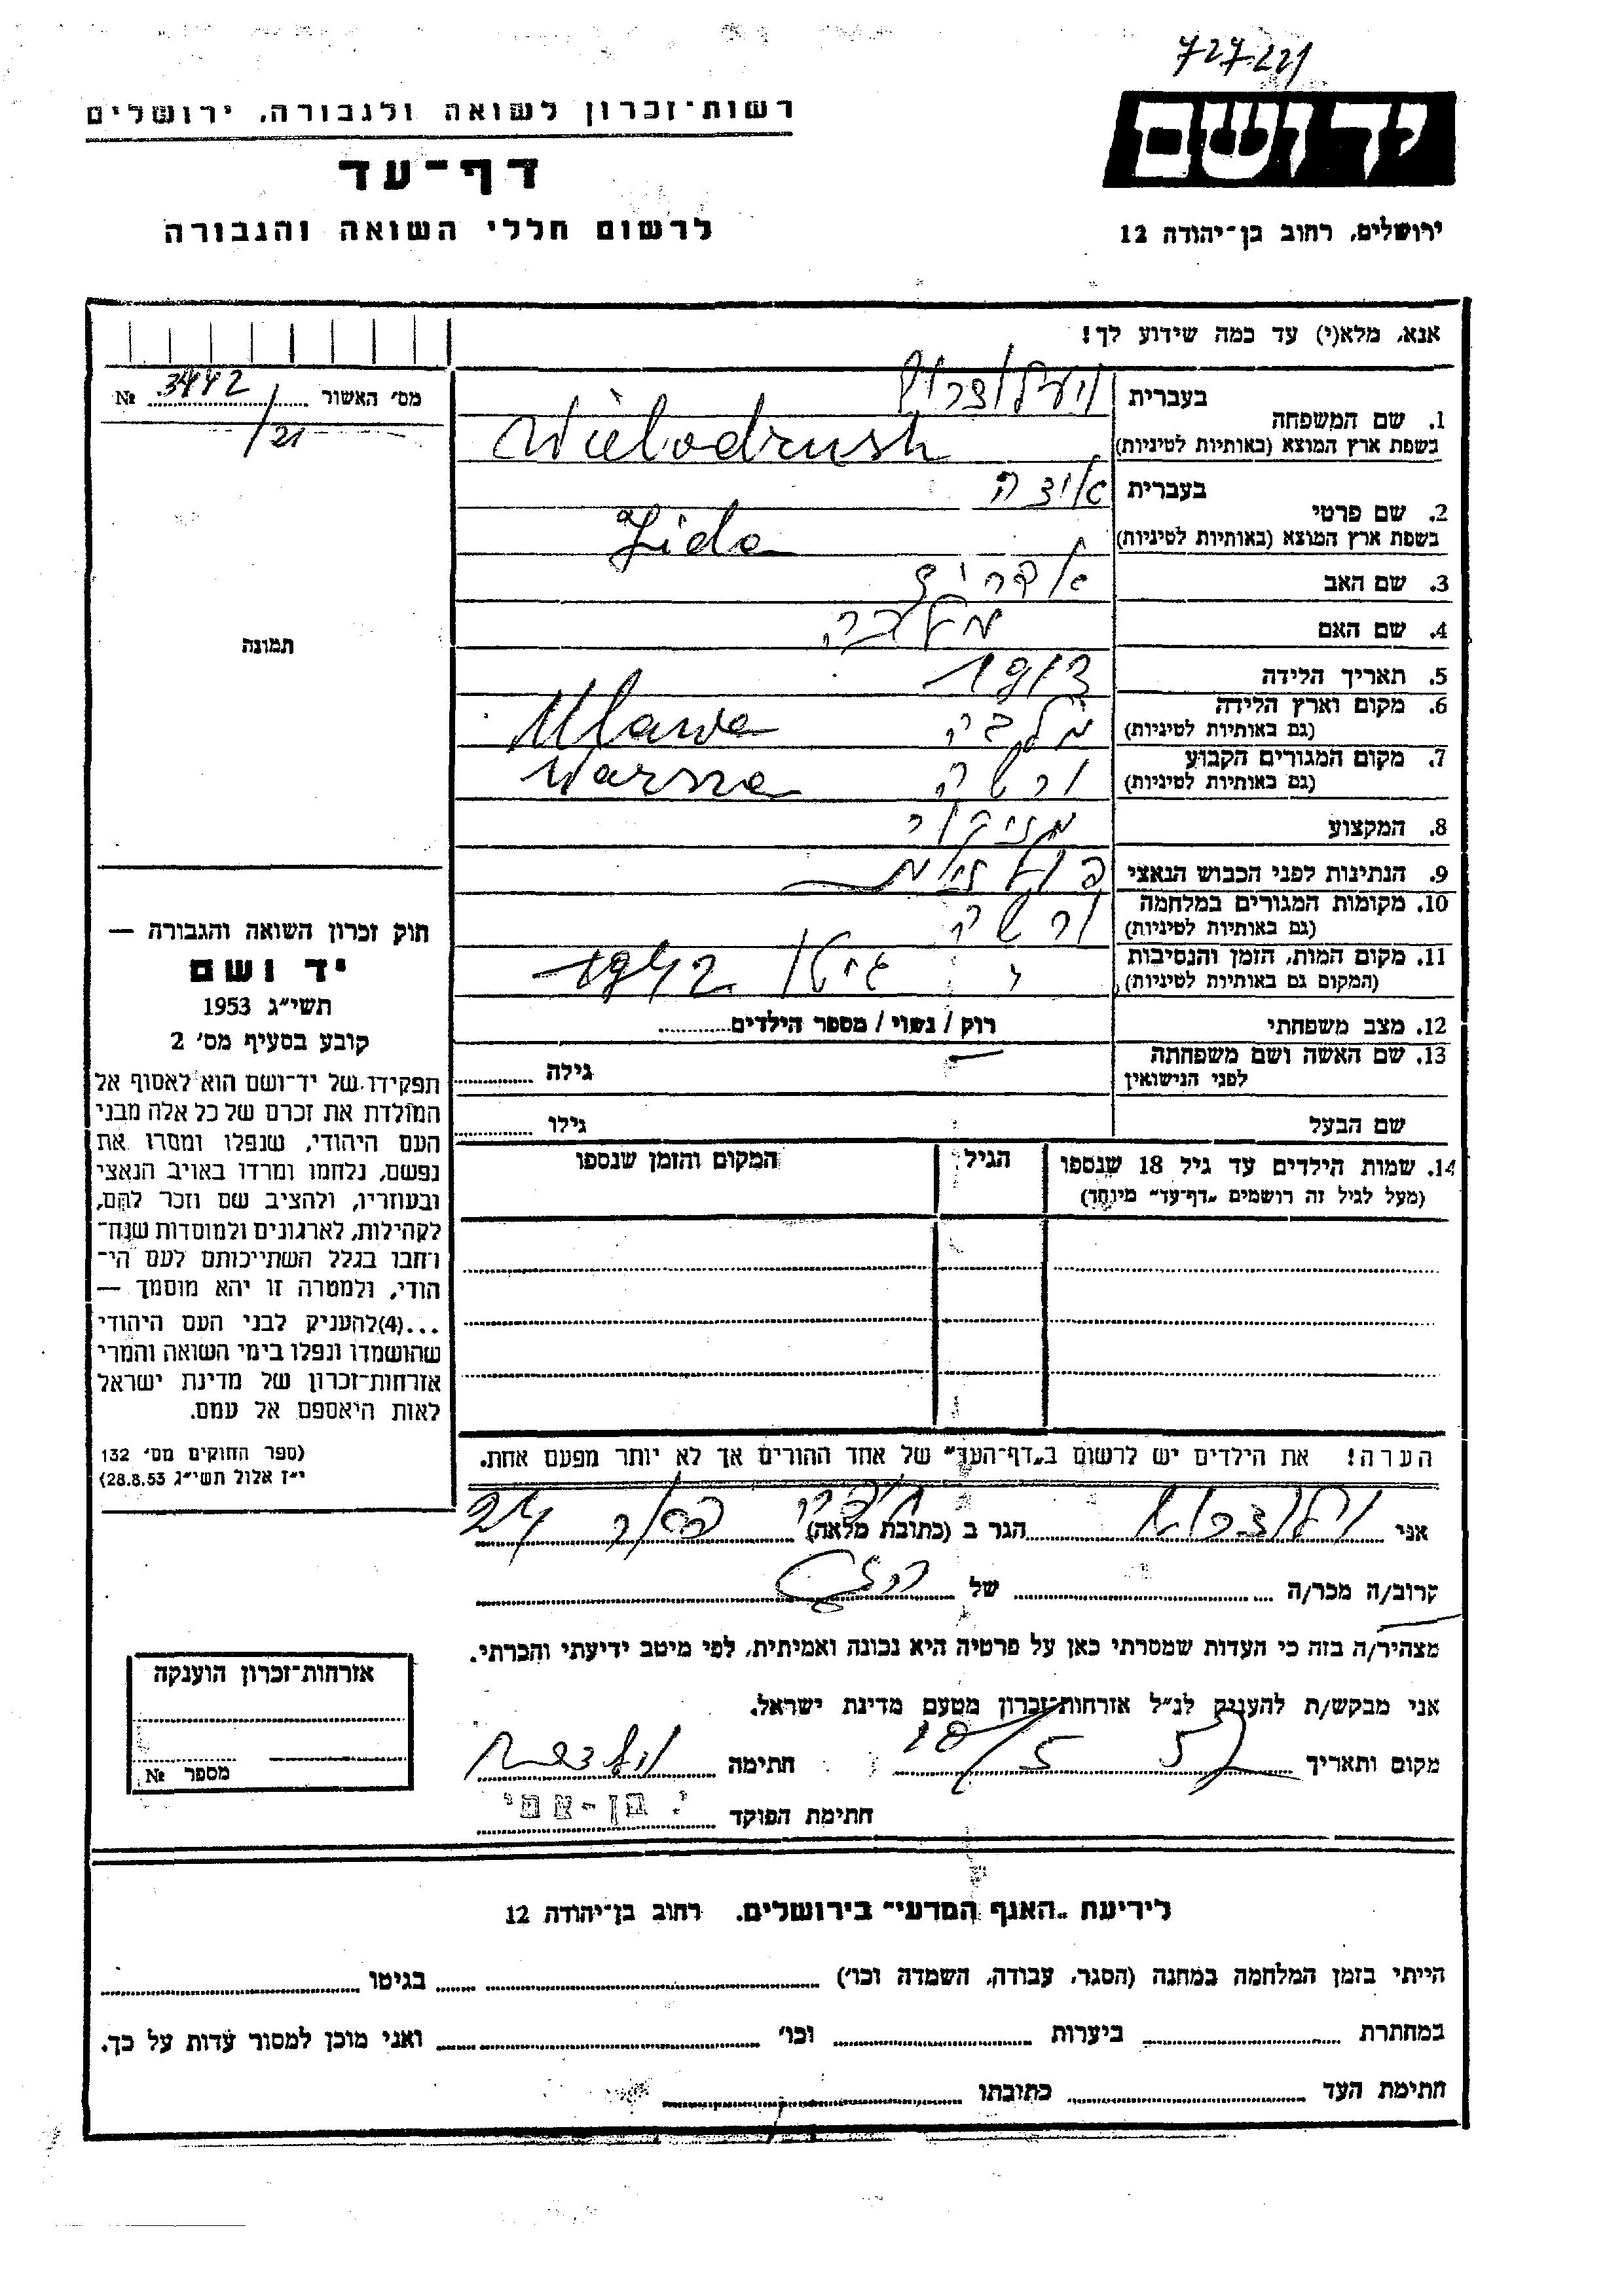 727221
יד ושם
רשות־זכרון לשואה ולגבורה, ירושלים
דף־עד
לרשום חללי השואה והגבורה
ירושלים, רחוב בן־יהודה 12
אנא, מלא(י) עד כמה שידוע לך!
מס׳ האשור 3442 №
/21
תמונה
1. שם המשפחה
בעברית
בשפת ארץ המוצא (באותיות לטיניות) Wielodrush
2. שם פרטי
בעברית
בשפת ארץ המוצא (באותיות לטיניות)
3. שם האב
4. שם האם מלכה
5. תאריך הלידה 1913
6. מקום וארץ הלידה Mlawa
(גם באותיות לטיניות)
7. מקום המגורים הקבוע ורשה Warsza
(גם באותיות לטיניות)
8. המקצוע
9. הנתינות לפני הכבוש הנאצי
10. מקומות המגורים במלחמה ורשה
(גם באותיות לטיניות)
11. מקום המות, הזמן והנסיבות גיטו 1942
(המקום גם באותיות לטיניות)
12. מצב משפחתי רוק / נשוי / מספר הילדים
13. שם האשה ושם משפחתה
לפני הנישואין
גילה
שם הבעל גילו
14. שמות הילדים עד גיל 18 שנספו
(מעל לגיל זה רושמים „דף־עד״ מיוחד)
הגיל
המקום והזמן שנספו
חוק זכרון השואה והגבורה —
יד ושם
תשי״ג 1953
קובע בסעיף מס׳ 2
תפקידו של יד־ושם הוא לאסוף אל
המולדת את זכרם של כל אלה מבני
העם היהודי, שנפלו ומסרו את
נפשם, נלחמו ומרדו באויב הנאצי
ובעוזריו, ולהציב שם וזכר להם,
לקהילות, לארגונים ולמוסדות שנח־
רחבו בגלל השתייכותם לעם הי־
הודי, ולמטרה זו יהא מוסמך —
...(4)להעניק לבני העם היהודי
שהושמדו ונפלו בימי השואה והמרי
אזרחות־זכרון של מדינת ישראל
לאות היאספם אל עמם.
(ספר החוקים מס׳ 132
י״ז אלול תשי״ג 28.8.53)
הערה! את הילדים יש לרשום ב„דף־העד״ של אחד ההורים אך לא יותר מפעם אחת.
אני הגר ב (כתובת מלאה) 24
קרוב/ה מכר/ה של
מצהיר/ה בזה כי העדות שמסרתי כאן על פרטיה היא נכונה ואמיתית, לפי מיטב ידיעתי והכרתי.
אני מבקש/ת להעניק לנ״ל אזרחות־זכרון מטעם מדינת ישראל.
מקום ותאריך 18/5 57 חתימה
חתימת הפוקד י. בן-צבי
אזרחות־זכרון הוענקה
מספר №
לידיעת „האגף המדעי״ בירושלים. רחוב בן־יהודה 12
הייתי בזמן המלחמה במחנה (הסגר, עבודה, השמדה וכו׳) בגיטו
במחתרת ביערות וכו׳ ואני מוכן למסור עדות על כך.
חתימת העד כתובתו